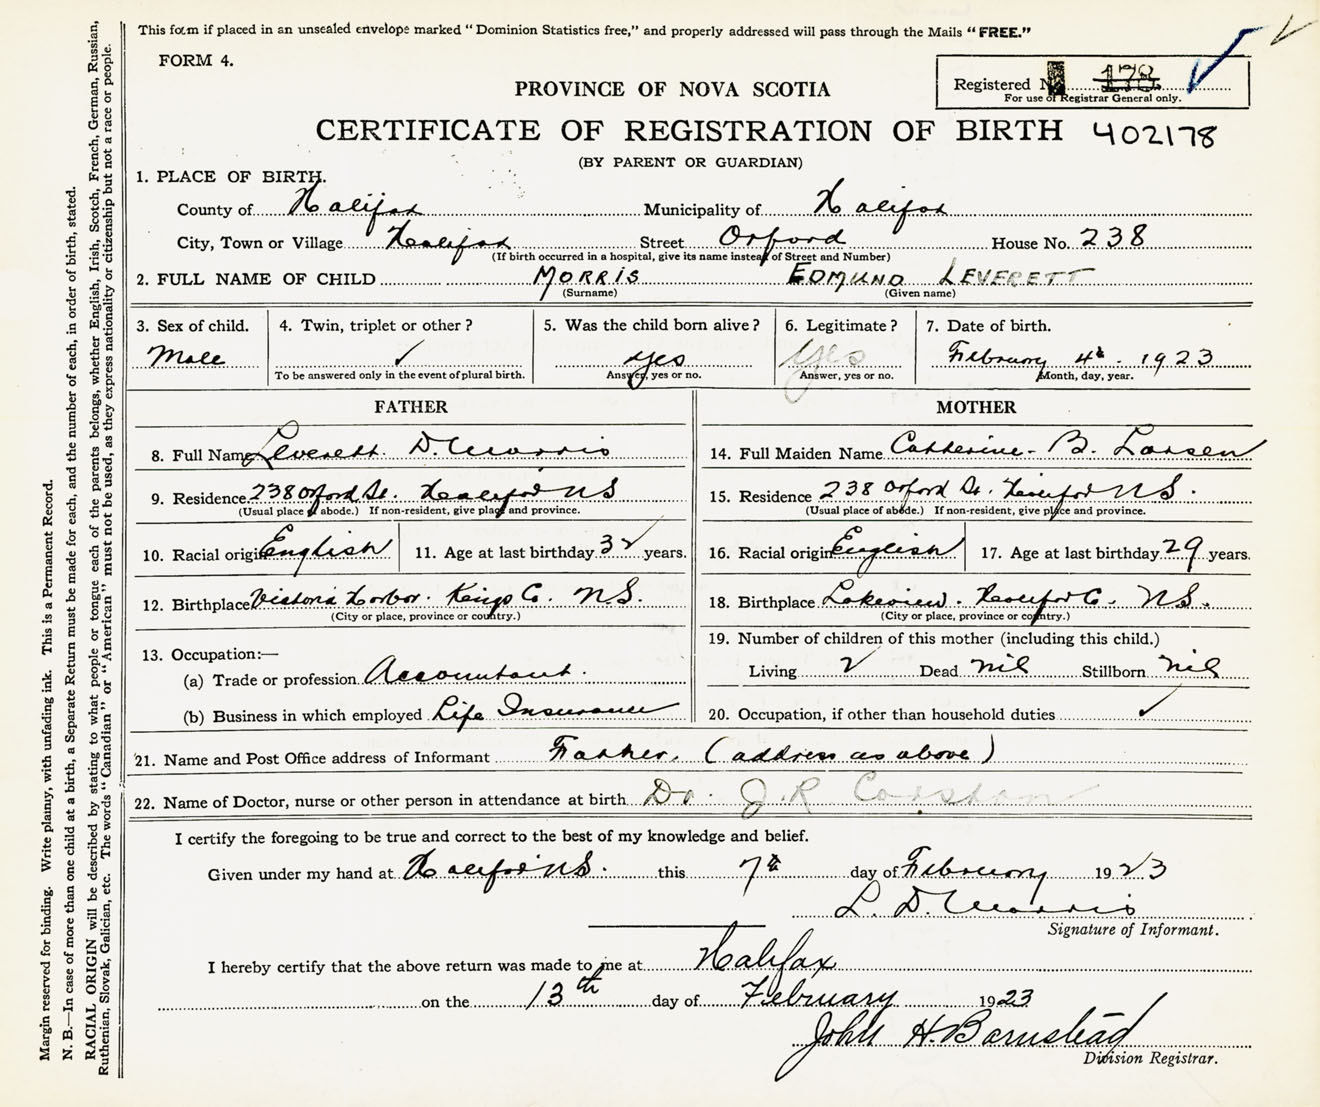 This form if placed in an unsealed envelope marked “Dominion Statistics free,” and properly addressed will pass through the Mails “FREE.”
FORM 4.
Registered No. 178
For use of Registrar General only.
PROVINCE OF NOVA SCOTIA
CERTIFICATE OF REGISTRATION OF BIRTH 402178
(BY PARENT OR GUARDIAN)
1. PLACE OF BIRTH.
County of Halifax Municipality of Halifax
City, Town or Village Halifax Street Oxford House No. 238
(If birth occurred in a hospital, give its name instead of Street and Number)
2. FULL NAME OF CHILD MORRIS EDMUND LEVERETT
(Surname) (Given name)
3. Sex of child. 4. Twin, triplet or other? 5. Was the child born alive? 6. Legitimate? 7. Date of birth.
Male ✓ yes yes February 4th. 1923
To be answered only in the event of plural birth. Answer, yes or no. Answer, yes or no. Month, day, year.
FATHER
8. Full Name Leverett D. Morris
9. Residence. 238 Oxford St. Halifax NS
(Usual place of abode.) If non-resident, give place and province.
10. Racial origin English 11. Age at last birthday 32 years.
12. Birthplace Victoria Harbor. Kings Co. N.S.
(City or place, province or country.)
13. Occupation:—
(a) Trade or profession Accountant.
(b) Business in which employed Life Insurance
MOTHER
14. Full Maiden Name Catherine B. Larsen
15. Residence 238 Oxford St. Halifax NS.
(Usual place of abode.) If non-resident, give place and province.
16. Racial origin English 17. Age at last birthday 29 years.
18. Birthplace Lakeview. Halifax Co. NS.
(City or place, province or country.)
19. Number of children of this mother (including this child.)
Living 2 Dead nil Stillborn nil
20. Occupation, if other than household duties ✓
21. Name and Post Office address of Informant Father. (address as above)
22. Name of Doctor, nurse or other person in attendance at birth Dr. J. R. Corston
I certify the foregoing to be true and correct to the best of my knowledge and belief.
Given under my hand at Halifax NS. this 7th day of February 1923
L. D. Morris
Signature of Informant.
I hereby certify that the above return was made to me at Halifax
on the 13th day of February 1923
John H. Barnstead
Division Registrar.
Margin reserved for binding. Write plainly, with unfading ink. This is a Permanent Record.
N. B.—In case of more than one child at a birth, a Separate Return must be made for each, and the number of each, in order of birth, stated.
RACIAL ORIGIN will be described by stating to what people or tongue each of the parents belongs, whether English, Irish, Scotch, French, German, Russian,
Ruthenian, Slovak, Galician, etc. The words “Canadian” or “American” must not be used, as they express nationality or citizenship but not a race or people.